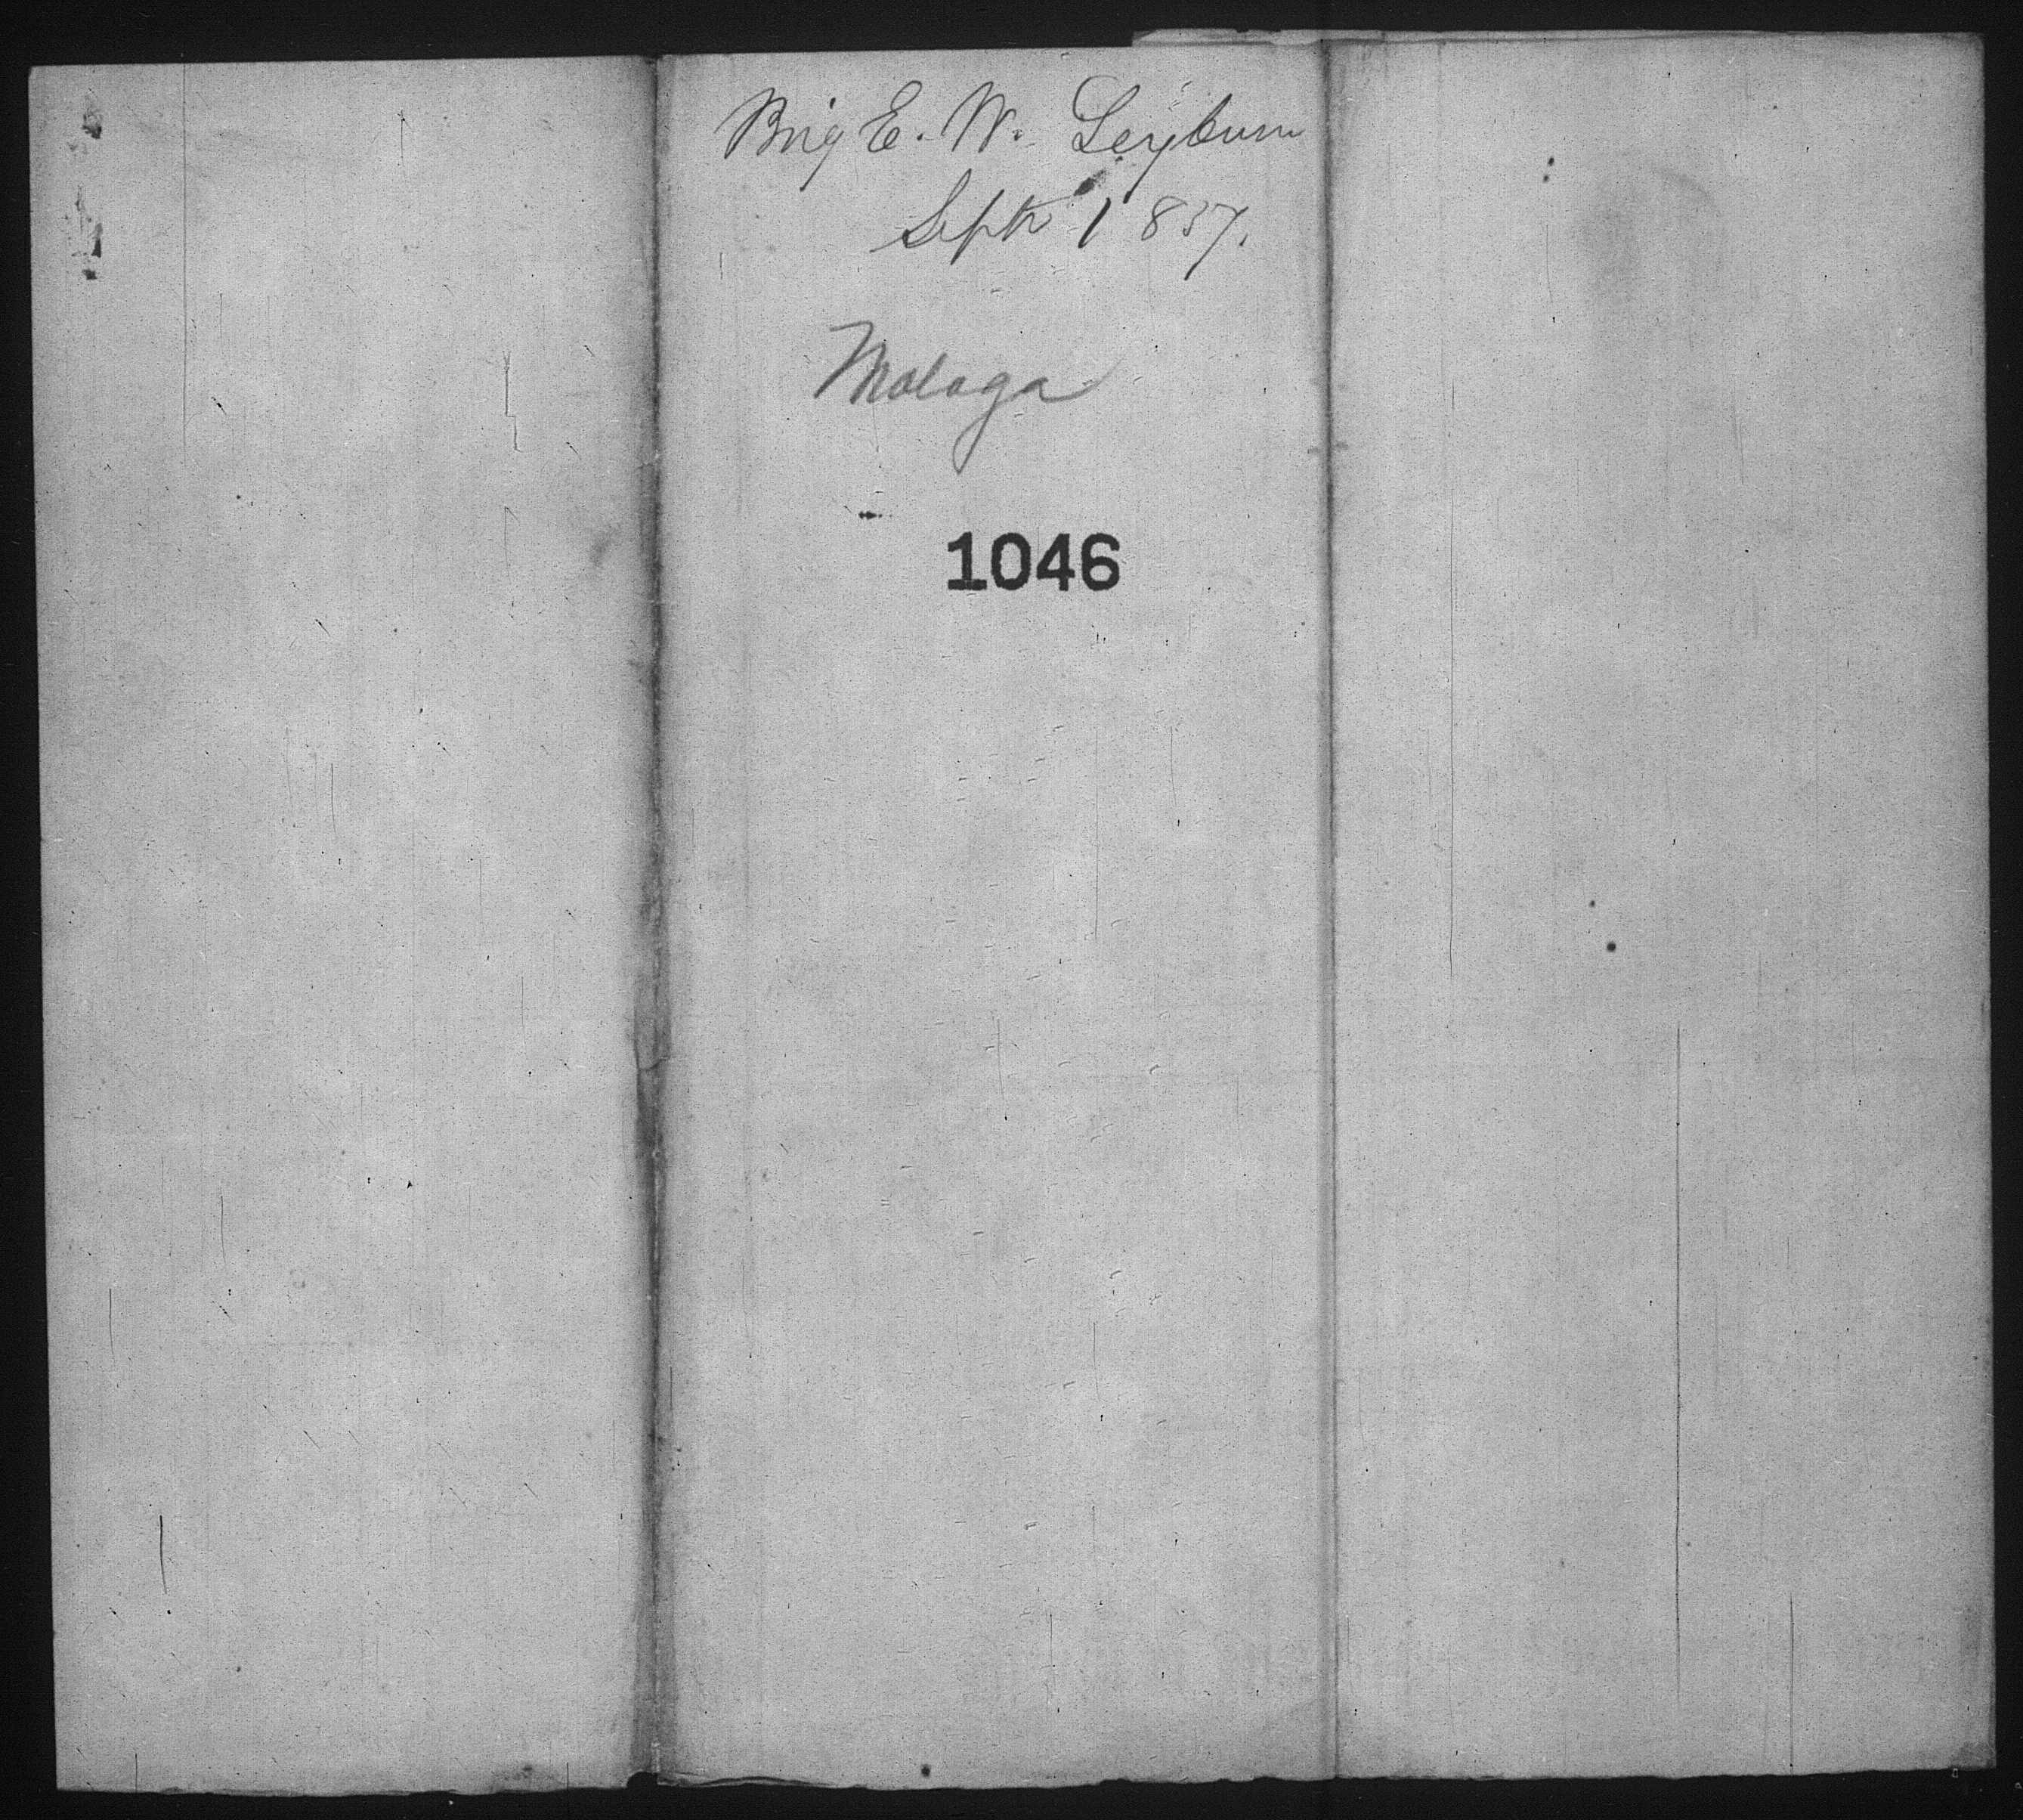 Brig E. W. Seyburn
Septr 1857.
Malaga
1046